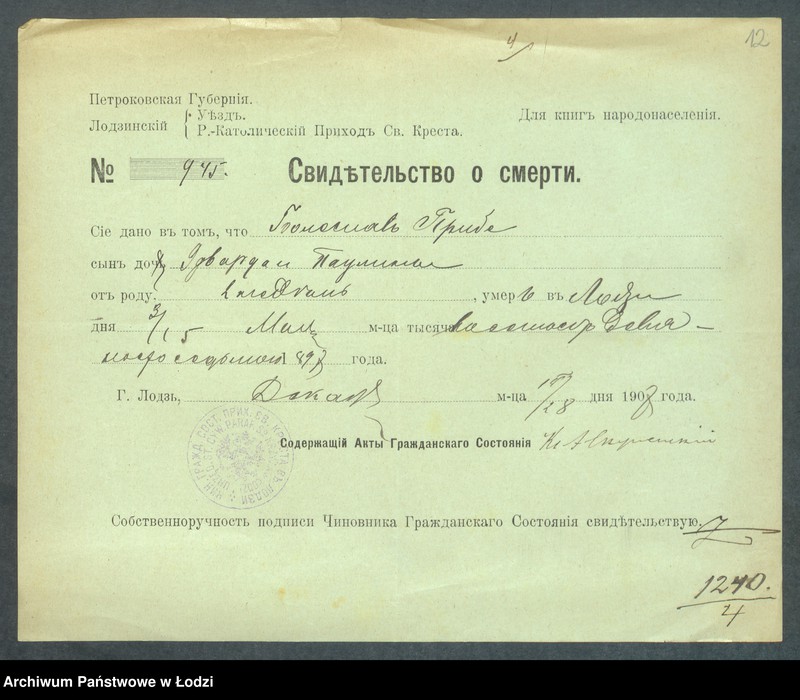 12
4
Петроковская Губернія.
Лодзинскій
Уѣздъ.
Р.-Католическій Приходъ Св. Креста.
Для книгъ народонаселенія.
№ 945.
Свидѣтельство о смерти.
Сіе дано въ томъ, что Болеславъ Прибе
сынъ доч Эдварда и Паулины
отъ роду , умеръ въ Лодзи
дня 3/15 Мая м-ца тысяча восемьсотъ Девя-
носто седьмого 1897 года.
Г. Лодзь, Декабр м-ца дня 1907 года.
Содержащій Акты Гражданскаго Состоянія
Собственноручность подписи Чиновника Гражданскаго Состоянія свидѣтельствую.
1240.
4
Archiwum Państwowe w Łodzi